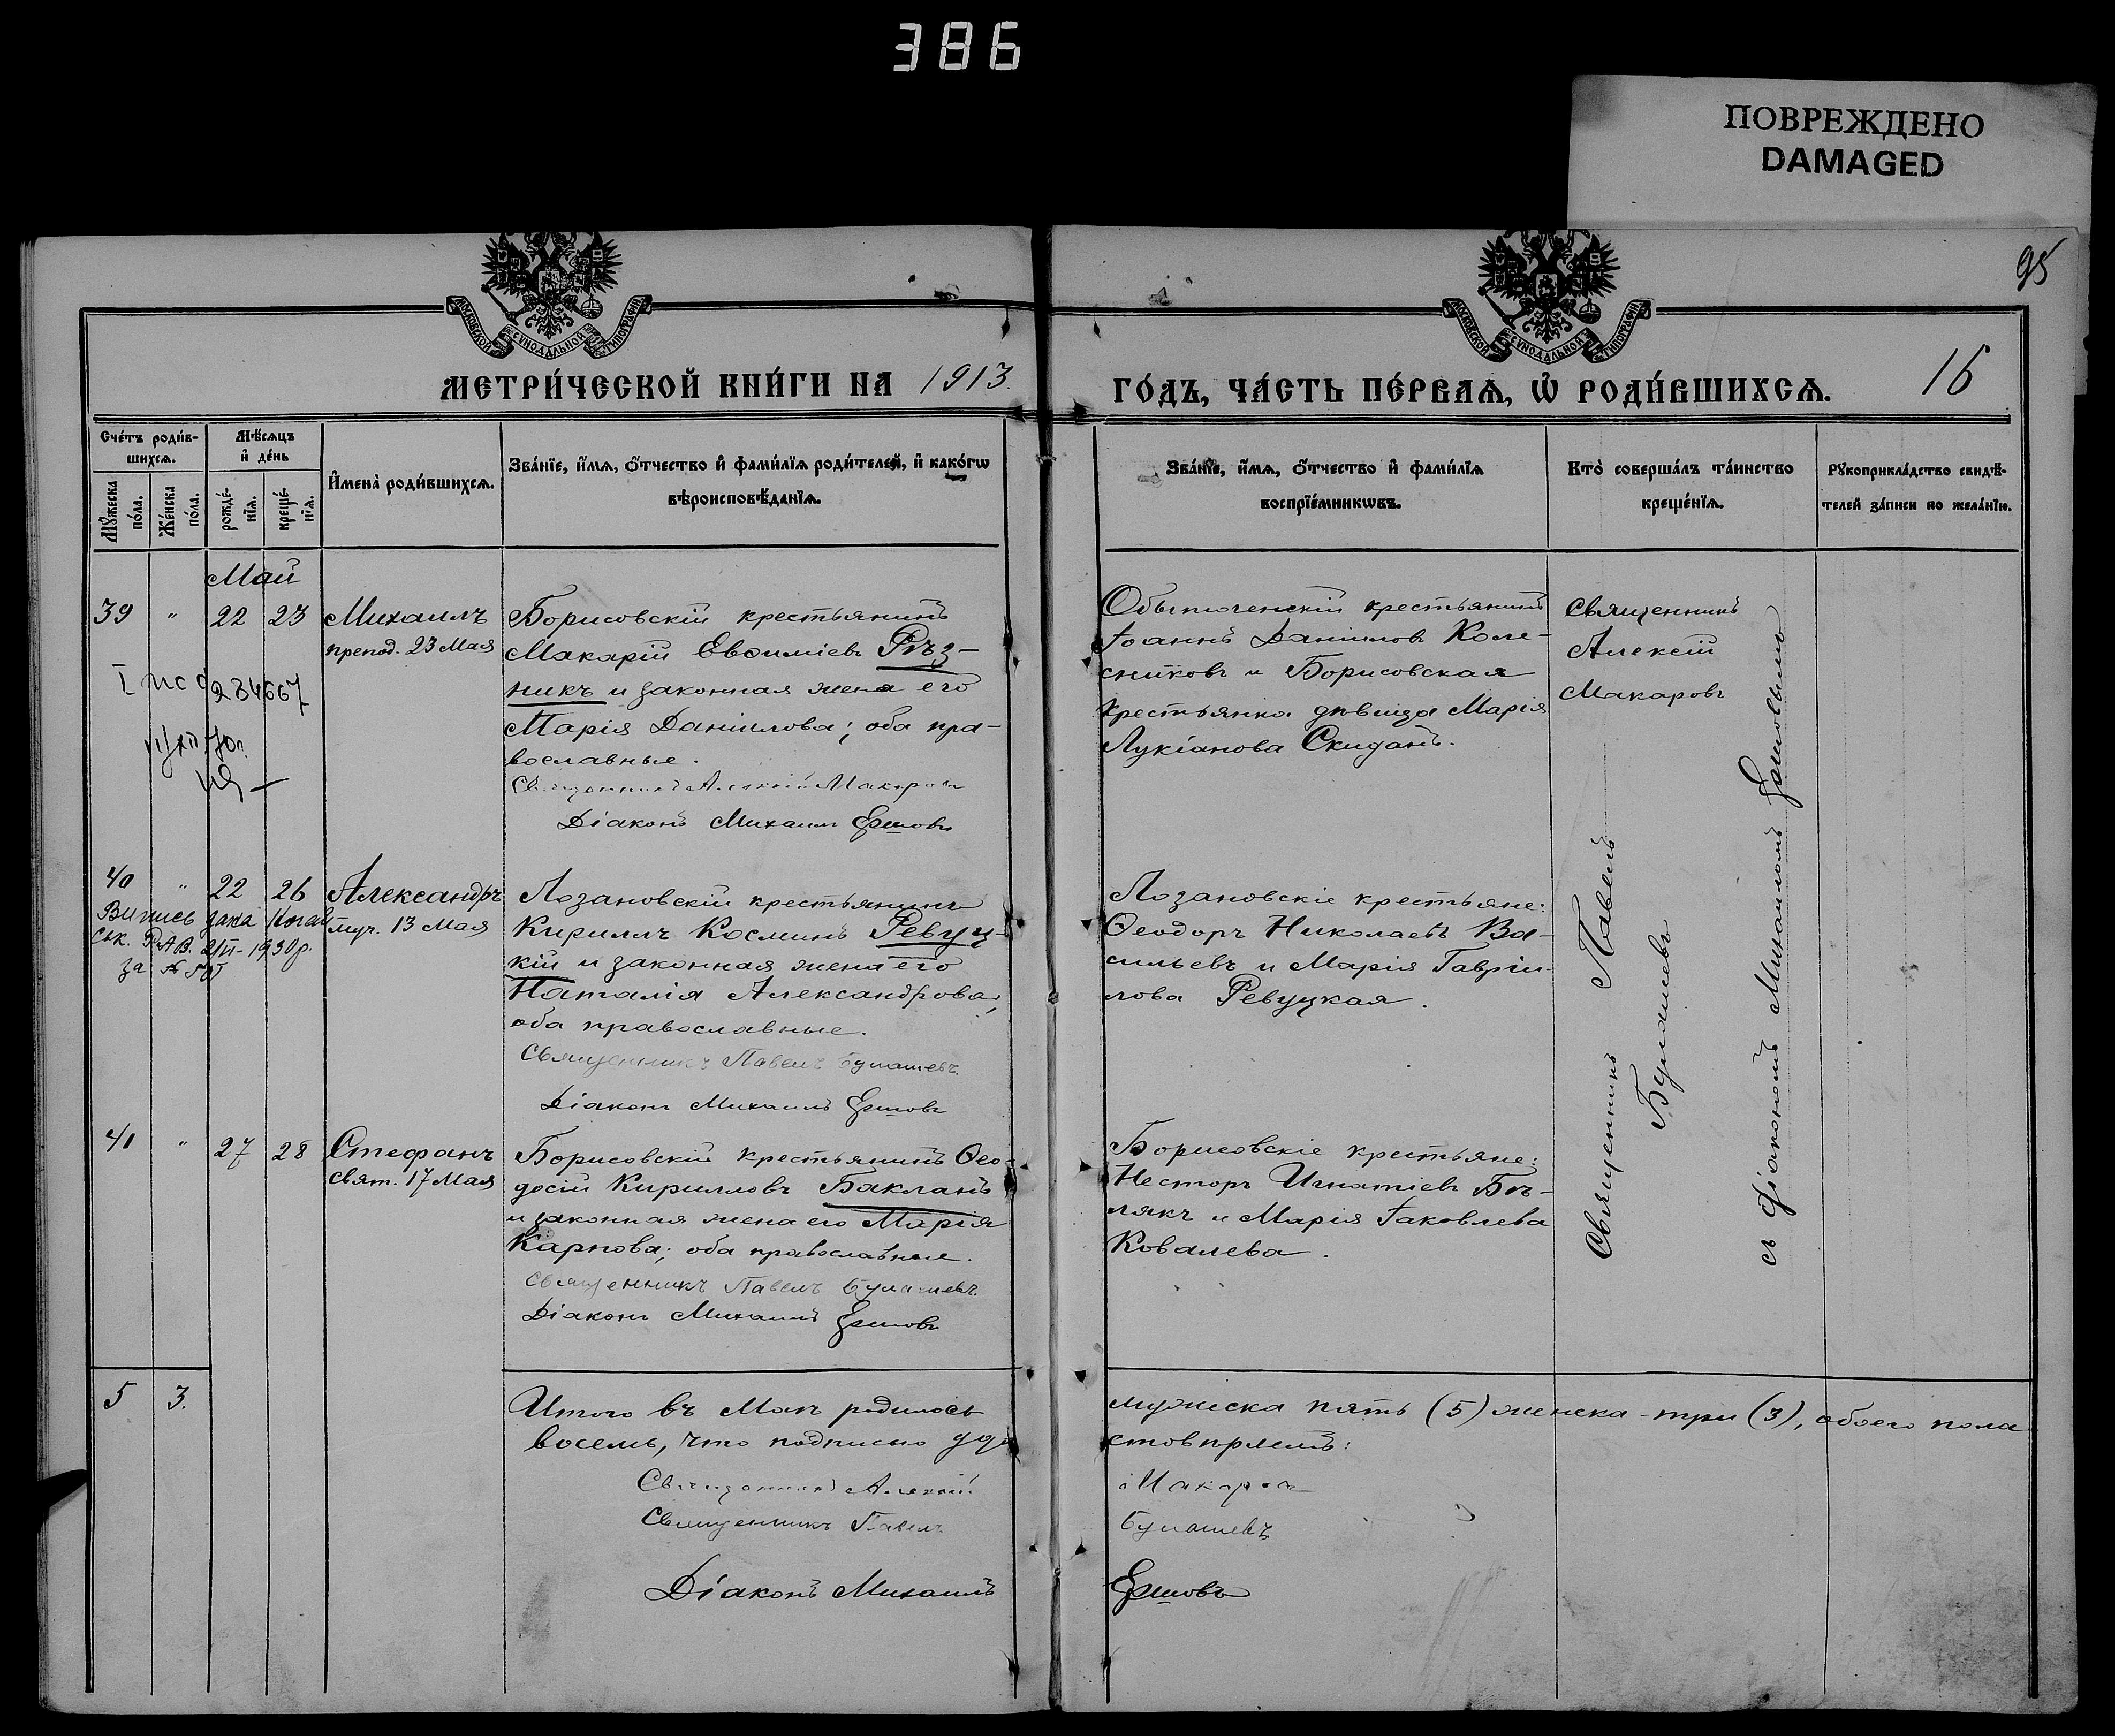 386
ПОВРЕЖДЕНО
DAMAGED
95
МОСКОВСКОЙ СѴНОДАЛЬНОЙ ТИПОГРАФІИ
МОСКОВСКОЙ СѴНОДАЛЬНОЙ ТИПОГРАФІИ
МЕТРИ́ЧЕСКОЙ КНИ́ГИ НА 1913.
ГО́ДЪ, ЧА́СТЬ ПЕ́РВАѦ, Ѡ҆ РОДИ́ВШИХСѦ.
16
Сче́тъ роди́в-
шихсѧ.
Мꙋ́жеска
по́ла.
Же́нска
по́ла.
Мѣ́сѧцъ
и҆ де́нь
рожде́-
нїѧ.
креще́-
нїѧ.
И҆мена̀ роди́вшихсѧ.
Зва́нїе, и҆́мѧ, ѻ҆́тчество и҆ фами́лїѧ роди́телей, и҆ како́гѡ
вѣроисповѣ́данїѧ.
Зва́нїе, и҆́мѧ, ѻ҆́тчество и҆ фами́лїѧ
воспрїе́мникѡвъ.
Кто̀ соверша́лъ та́инство
креще́нїѧ.
Рꙋкоприкла́дство свидѣ́-
телей за́писи по жела́нїю.
Май
39 " 22 23
Михаилъ
препод. 23 Мая
Борисовскій крестьянинъ
Макарій Евѳиміевъ Рѣз-
никъ и законная жена его
Марія Даніилова; оба пра-
вославные.
Священникъ Алексій Макаровъ
Діаконъ Михаилъ Ершовъ
крестьянинъ
Іоаннъ Даніиловъ Коле-
сниковъ и Борисовская
крестьянка дѣвица Марія
Лукіанова Скиданъ.
Священникъ
Алексій
Макаровъ
284667
40 " 22 26
Александръ
муч. 13 Мая
Лозановскій крестьянинъ
Кириллъ Косминъ Ревуц-
кій и законная жена его
Наталія Александрова;
оба православные.
Священникъ Павелъ Булашевъ.
Діаконъ Михаилъ Ершовъ
Лозановскіе крестьяне:
Ѳеодоръ Николаевъ Ва-
сильевъ и Марія Гавріи-
лова Ревуцкая.
Священникъ Павелъ
Булашевъ
съ діакономъ Михаиломъ Ершовымъ
41 " 27 28
Стефанъ
свят. 17 Мая
Борисовскій крестьянинъ Ѳео-
досій Кирилловъ Бакланъ
и законная жена его Марія
Карпова; оба православные.
Священникъ Павелъ Булашевъ.
Діаконъ Михаилъ Ершовъ
Борисовскіе крестьяне:
Несторъ Игнатіевъ Бѣ-
лякъ и Марія Іаковлева
Ковалева.
5 3.
Итого въ Маѣ родилось
мужеска пять (5) женска - три (3), обоего пола
восемь, что подписью удо
стовѣряемъ:
Священникъ Алексій
Макаровъ
Священникъ Павелъ
Булашевъ
Діаконъ Михаилъ
Ершовъ